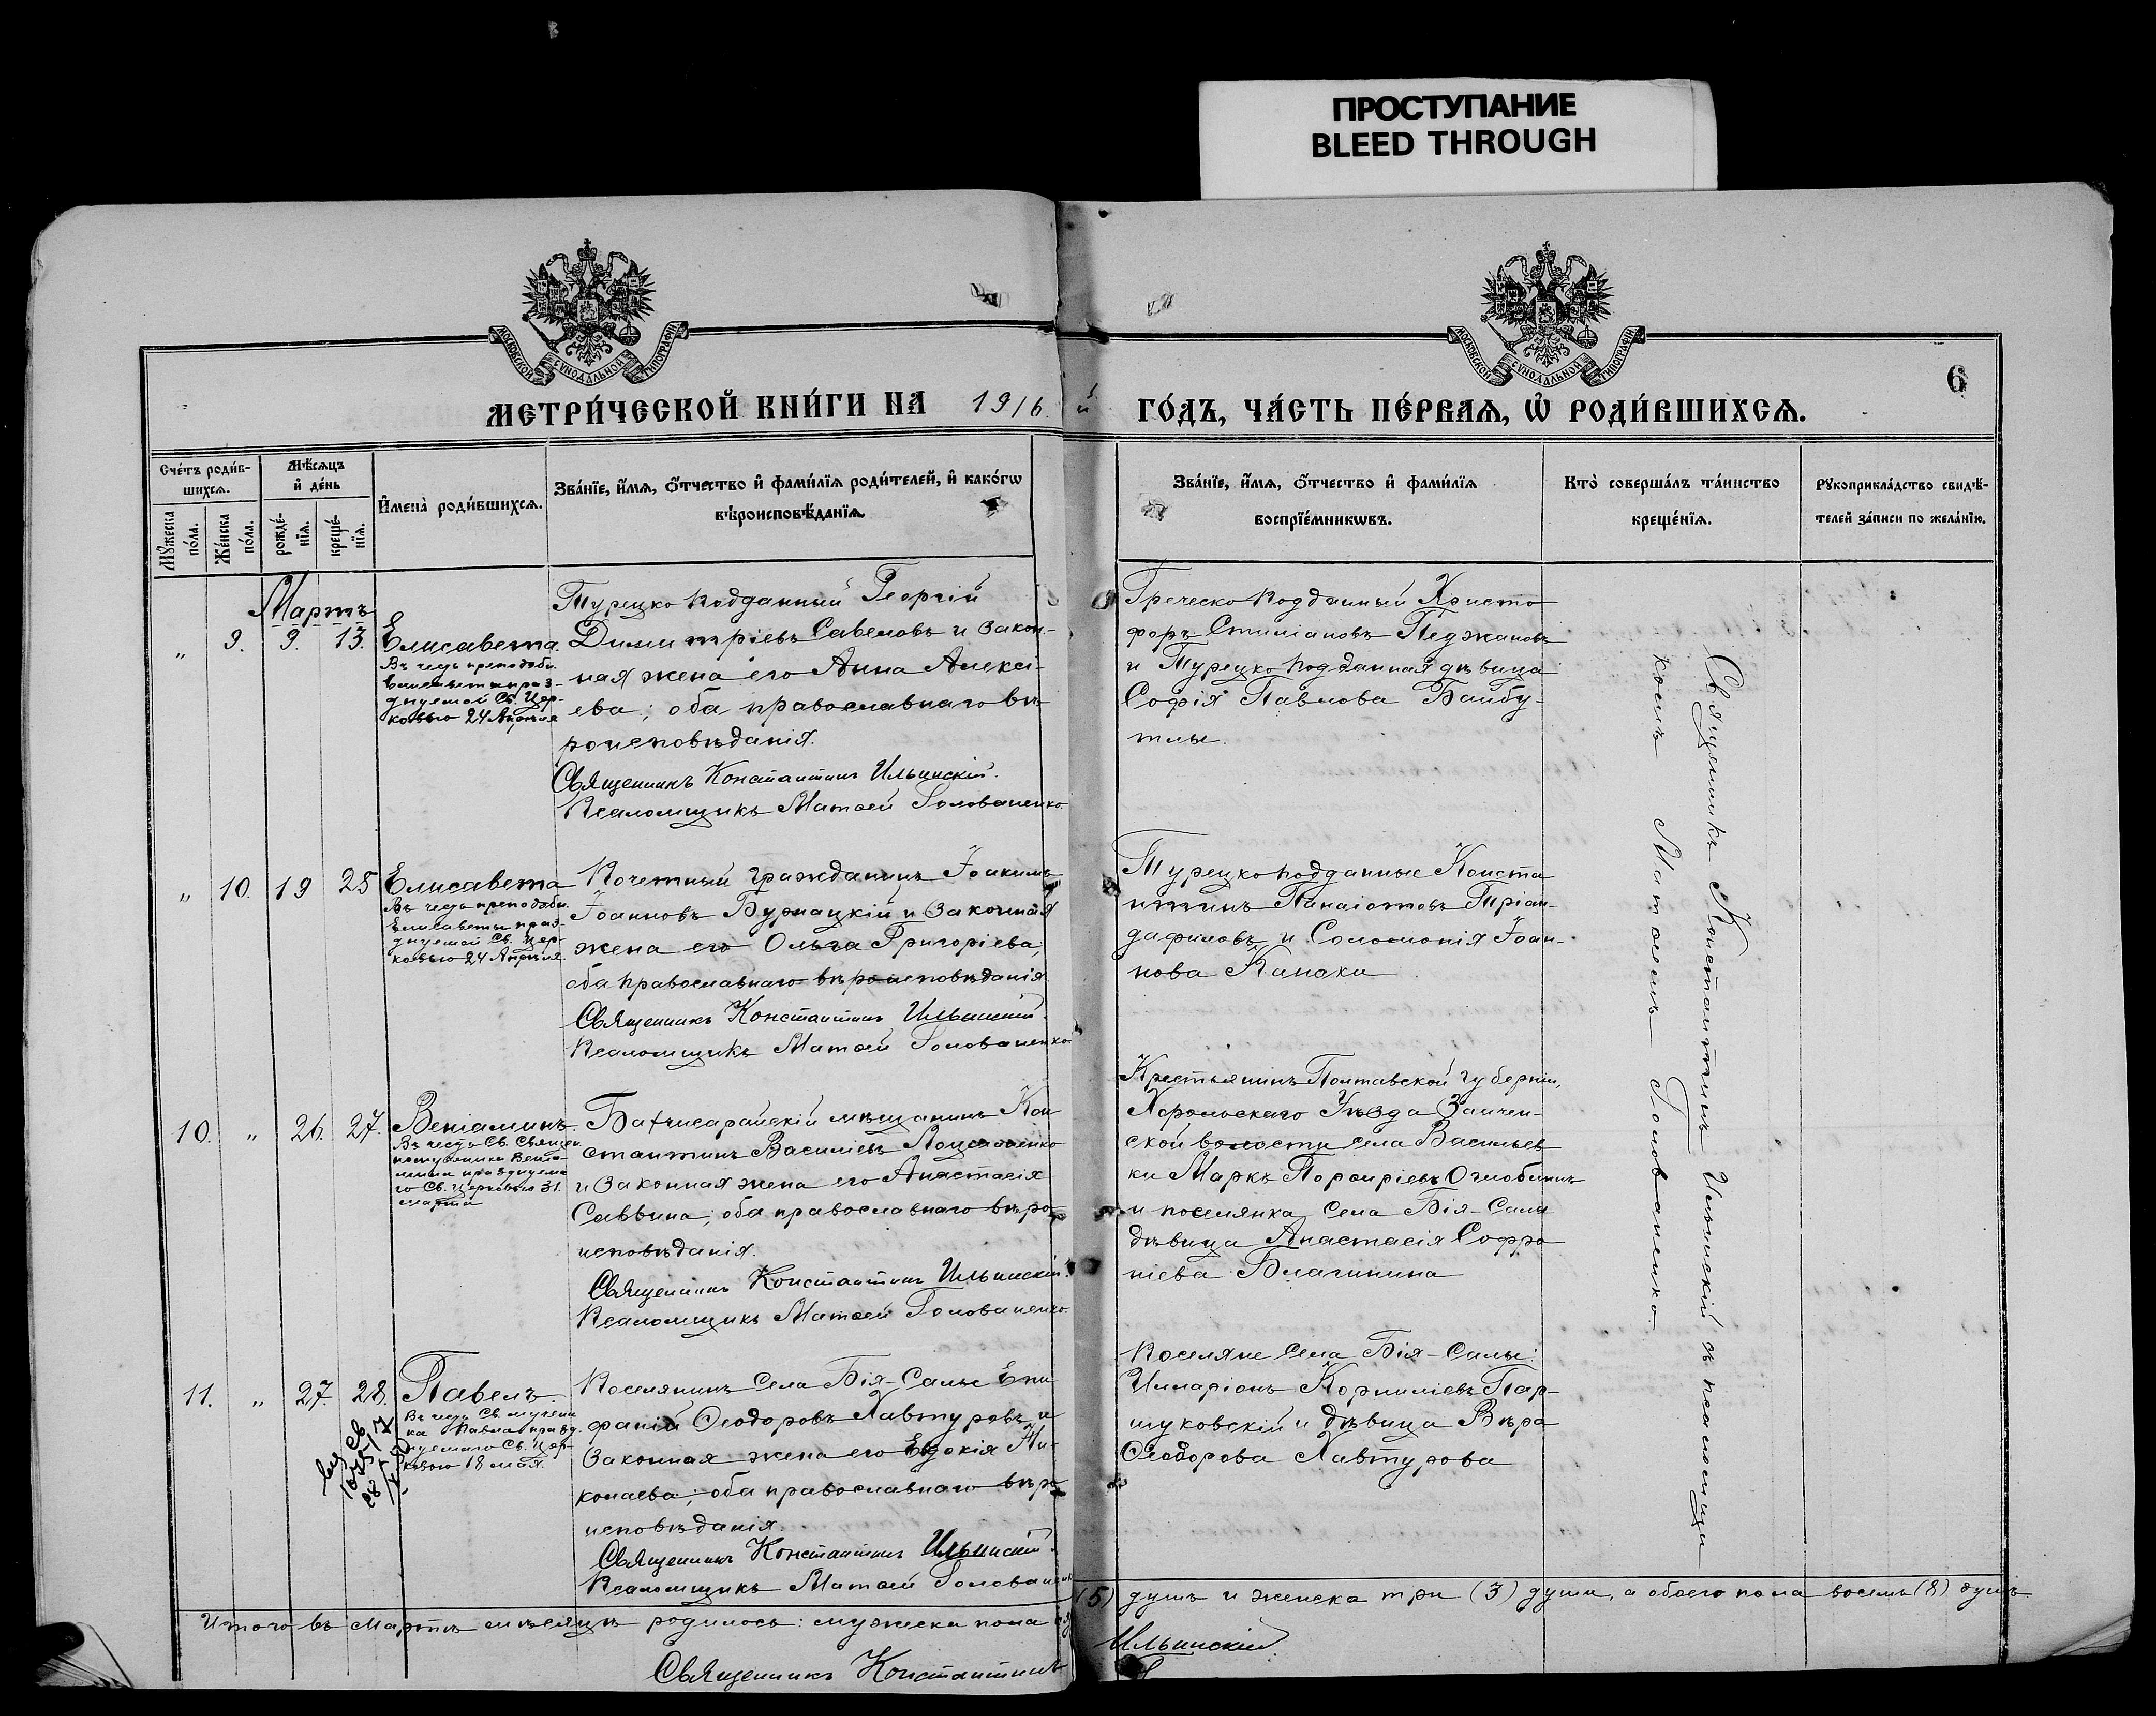 ПРОСТУПАНИЕ
BLEED THROUGH
МОСКОВСКОЙ СѴНОДАЛЬНОЙ ТИПОГРАФІИ
МОСКОВСКОЙ СѴНОДАЛЬНОЙ ТИПОГРАФІИ
6
МЕТРИ́ЧЕСКОЙ КНИ́ГИ НА 1916 й ГО́ДЪ, ЧА́СТЬ ПЕ́РВАѦ, Ѡ҆ РОДИ́ВШИХСѦ.
Сче́тъ роди́вшихсѧ.
Мꙋжеска по́ла.
Же́нска по́ла.
Мѣ́сѧцъ и҆ де́нь
рожде́нїѧ.
креще́нїѧ.
И҆мена̀ роди́вшихсѧ.
Зва́нїе, и҆́мѧ, ѻ҆́тчество и҆ фами́лїѧ роди́телей, и҆ како́гѡ
вѣроисповѣ́данїѧ.
Зва́нїе, и҆́мѧ, ѻ҆́тчество и҆ фами́лїѧ
воспрїе́мникѡвъ.
Кто̀ соверша́лъ та́инство
креще́нїѧ.
Рꙋкоприкла́дство свидѣ́-
телей за́писи по жела́нїю.
Мартъ
" 9. 9. 13. Елисавета
Въ честь преподобн.
Елисаветы праз-
днуемой Св. Цер-
ковью 24 Апрѣля
Турецко подданный Георгій
Димитріевъ Савеловъ и закон-
ная жена его Анна Алексі-
ева; оба православнаго вѣ-
роисповѣданія.
Священникъ Константинъ Ильинскій.
Псаломщикъ Матѳей Голованенко
Греческо подданный Христо
форъ Стиліановъ Педжановъ
и Турецко подданная дѣвица
Софія Павлова Баибу-
тлы.
" 10. 19 25 Елисавета
Въ честь преподобн.
Елисаветы праз-
днуемой Св. Цер-
ковью 24 Апрѣля.
Почетный гражданинъ Іоакимъ
Іоанновъ Бурнацкій и законная
жена его Ольга Григоріева,
оба православнаго вѣроисповѣданія
Священникъ Константинъ Ильинскій.
Псаломщикъ Матѳей Голованенко
Турецко подданные Конста
нтинъ Панаіотовъ Тріан-
дафиловъ и Соломонія Іоан-
нова Канаки
10. " 26. 27. Веніаминъ
Въ честь Св. Священ.
номученика Венiа-
мина празднуема
го Св. Церковью 31
марта
Бахчисарайскій мѣщанинъ Кон
стантинъ Василіевъ
и законная жена его Анастасія
Саввина; оба православнаго вѣро
исповѣданія.
Священникъ Константинъ Ильинскій.
Псаломщикъ Матѳей Голованенко.
Крестьянинъ Полтавской губерніи,
Хорольскаго Уѣзда
ской волости села Васильев
ки Маркъ Порфиріевъ Оглоблинъ
и поселянка села Бія-Сала
дѣвица Анастасія Софро
ніева Благинина
11. " 27. 28. Павелъ
Въ честь Св. мучени
ка Павла праздн
уемаго Св. Цер-
ковью 18 мая.
Поселянинъ села Бія-Салы Епи
фаній Ѳеодоровъ Хавтуровъ и
законная жена его Евдокія Ни-
колаева; оба православнаго вѣро
исповѣданія.
Священникъ Константинъ Ильинскій.
Псаломщикъ Матѳей Голованенко
Поселяне села Бія-Салы:
Илларіонъ Корниліевъ Пар-
шуковскій и дѣвица Вѣра
Ѳеодорова Хавтурова
Священникъ Константинъ Ильинскій съ псаломщи
комъ Матѳеемъ Голованенко.
Итого въ Мартѣ мѣсяцѣ родилось: мужеска пола (5) душъ и женска три (3) души, а обоего пола восемь (8) душъ.
Священникъ Константинъ Ильинскій